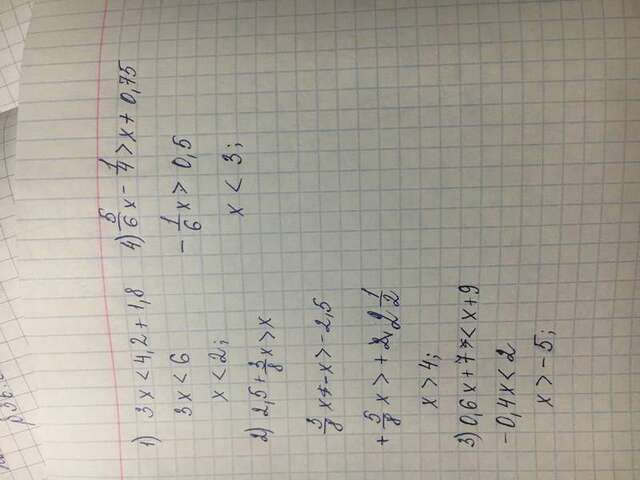 р 36.
1) 3x < 4,2 + 1,8
3x < 6
x < 2;
2) 2,5 + 3/8 x > x
3/8 x - x > -2,5
+ 5/8 x > + 2 1/2
x > 4;
3) 0,6x + 7 < x + 9
- 0,4x < 2
x > - 5;
4) 5/6 x - 1/4 > x + 0,75
- 1/6 x > 0,5
x < 3;